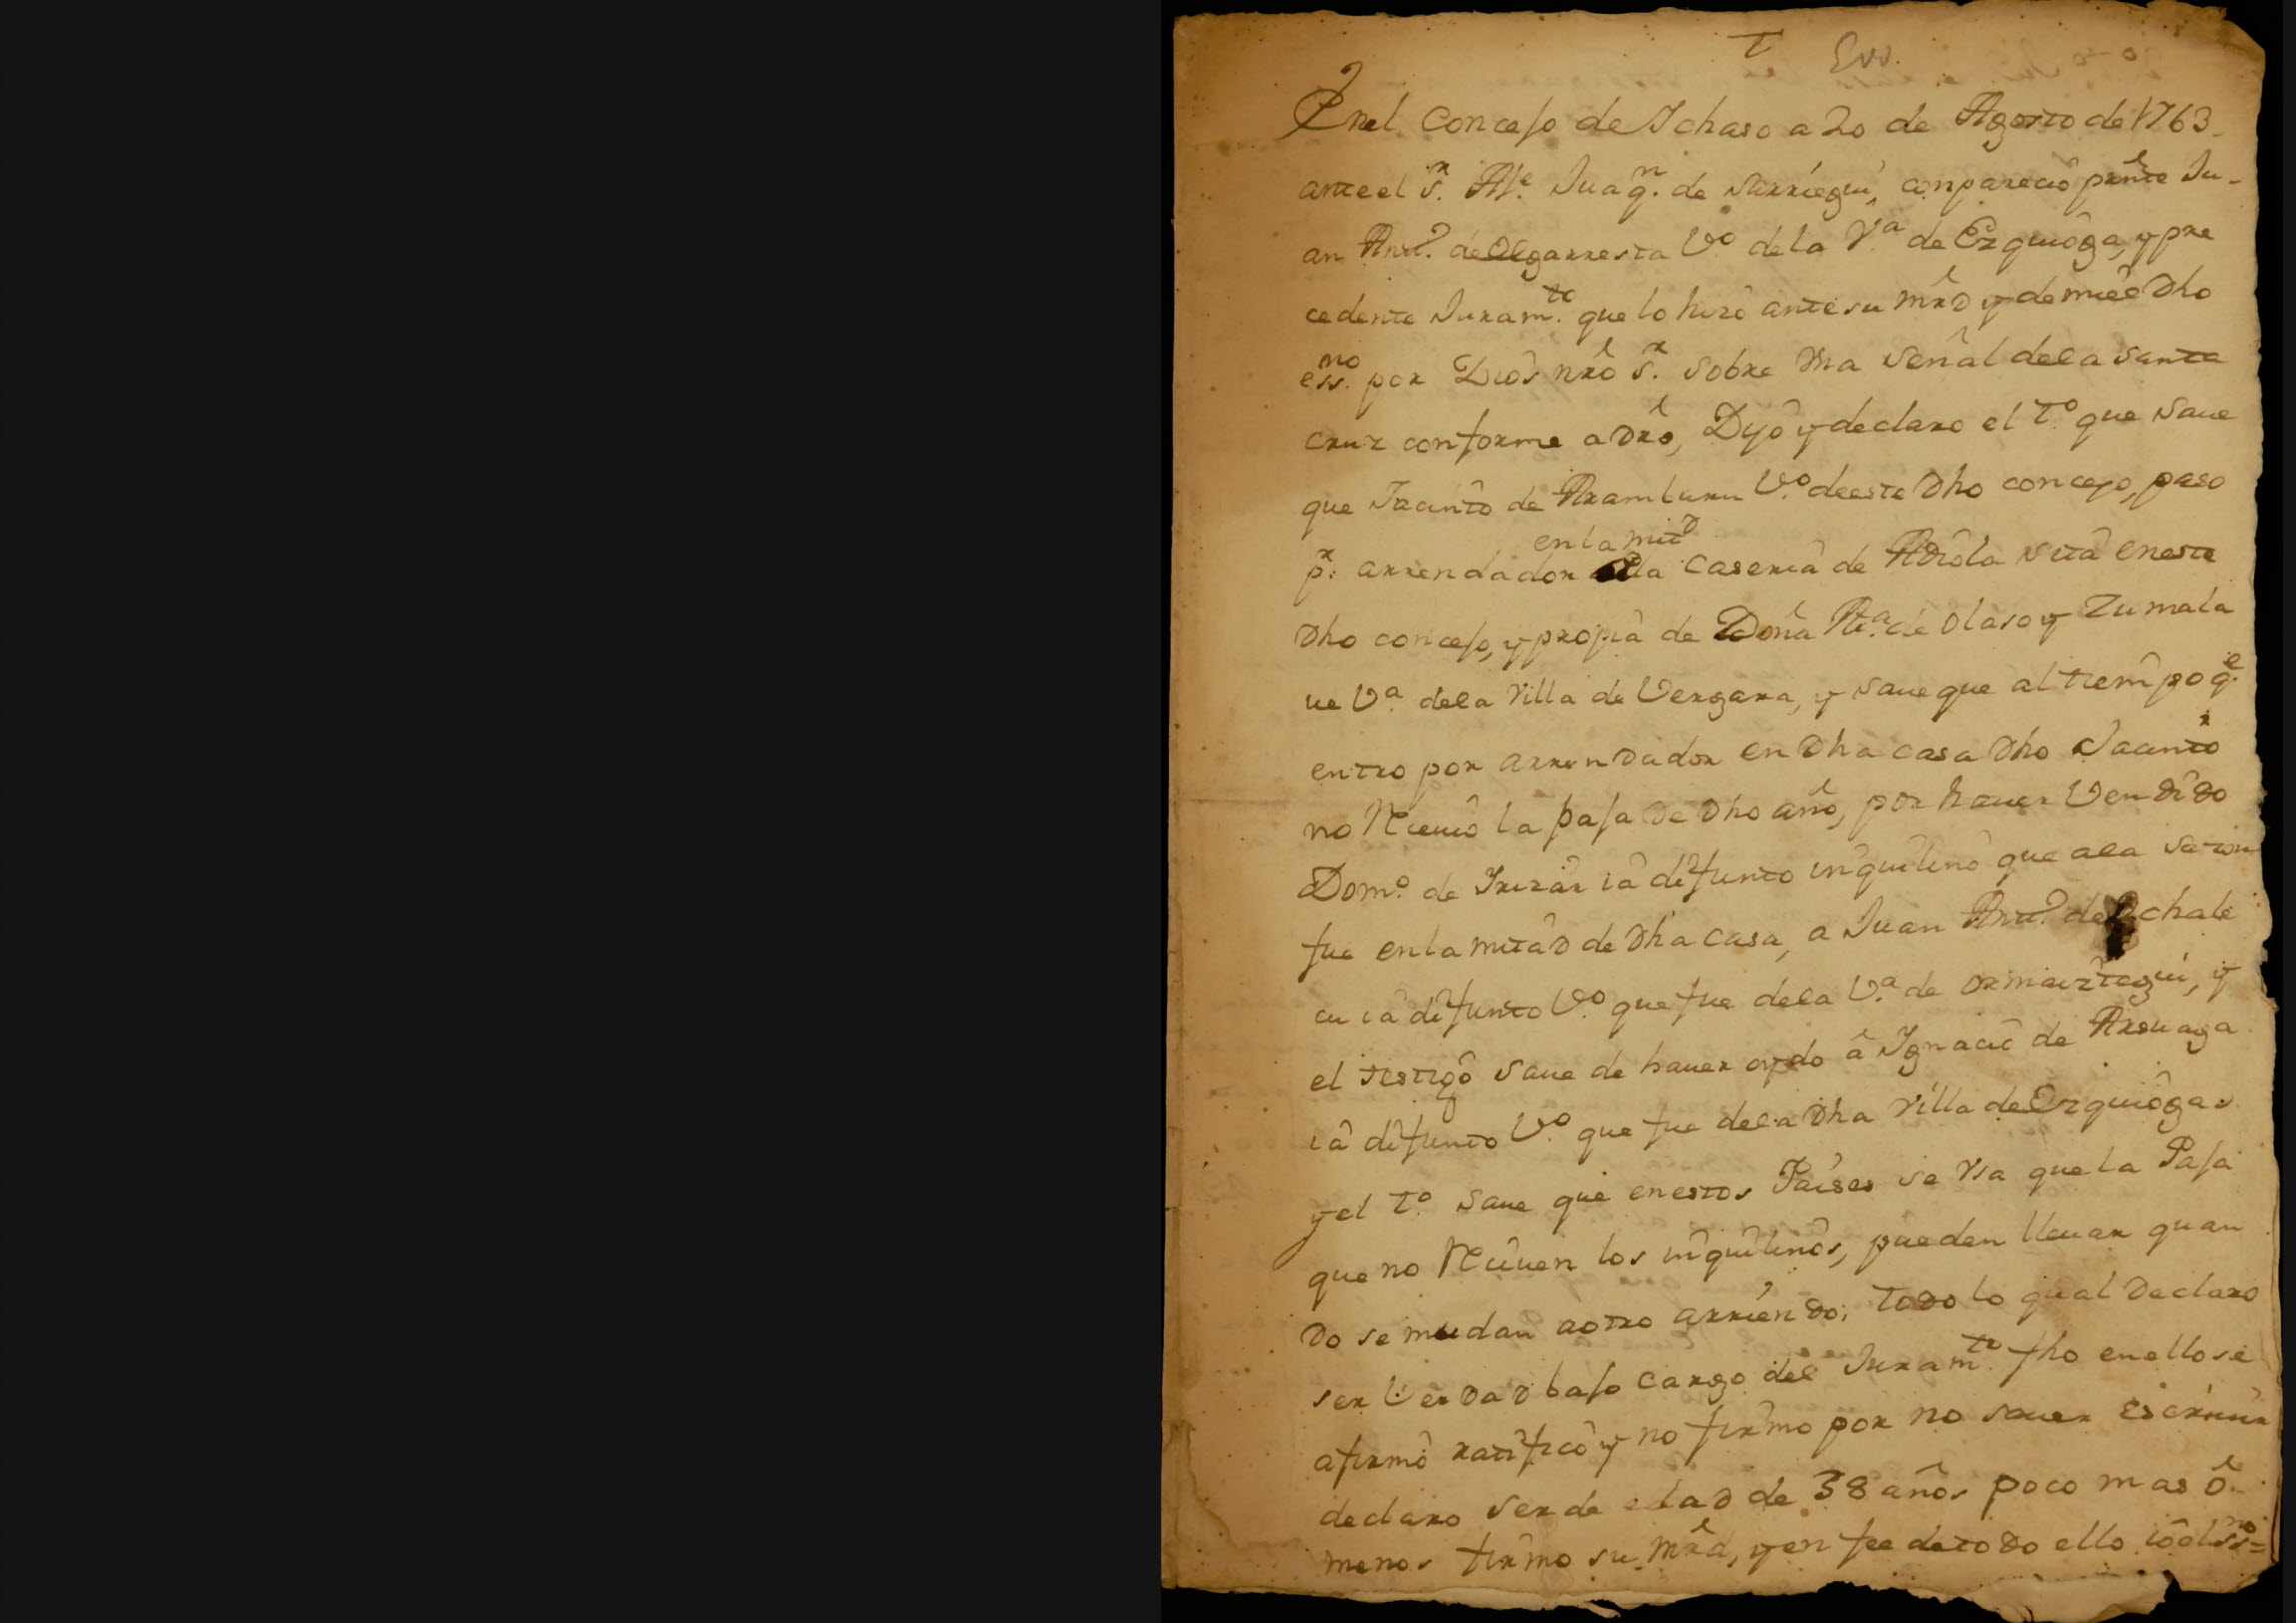 T
En el Concejo de Ichaso a 20 de Agosto de 1763
ante el Sr. Alе. Juaqn. de Sarriegui, conpareciò preste Ju-
an Anto. de Olgarresta Vo. de la Va. de Ezquioga, y pre
cedente Juramto. que lo hizo ante su mrd y de mi el dho
essno. por Dios nro Sr. sobre una señal de la santa
cruz conforme a dro, Dijo y declaro el to. que saue
que Jacinto de Aramburu Vo. de este dho concejo, paso
pr. arrendador en la mitd la caseria de Adiola sita en este
dho concejo, y propia de Doña de Olaso y Zumala
ue Va. de la Villa de Vergara, y saue que al tiempo qe.
entro por arrendador en dha casa dho Jacinto
no Reciuio la paja de dho año, por hauer Vendido
Domo. de Irizar ia difunto inquilino que a la sazon
fue en la mitad de dha casa, a Juan Anto. de chale
cu ia difunto Vo. que fue de la Va. de ormaiztegui, y
el testigo saue de hauer oydo â Ignacio de Arsuaga
ia difunto Vo. que fue de la dha Villa de Ezquioga
y el to. saue que en estos Paises se Vsa que la Paja
que no Reciuen los inquilinos, pueden lleuar quan
do se mudan a otro arriendo; todo lo qual declaro
ser Verdad bajo cargo del Juramto. fho en ello se
afirmò ratificò y no firmo por no sauer escriuir
declaro ser de edad de 38 años poco mas ô
menos firmo su mrd, y en fee de todo ello io el ssno=